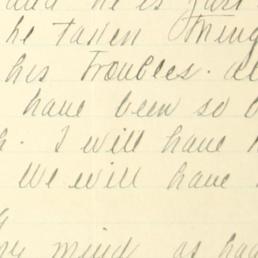 and he is just
he taken things
his troubles. all
have been so
h. I will have
We will have
my mind as had